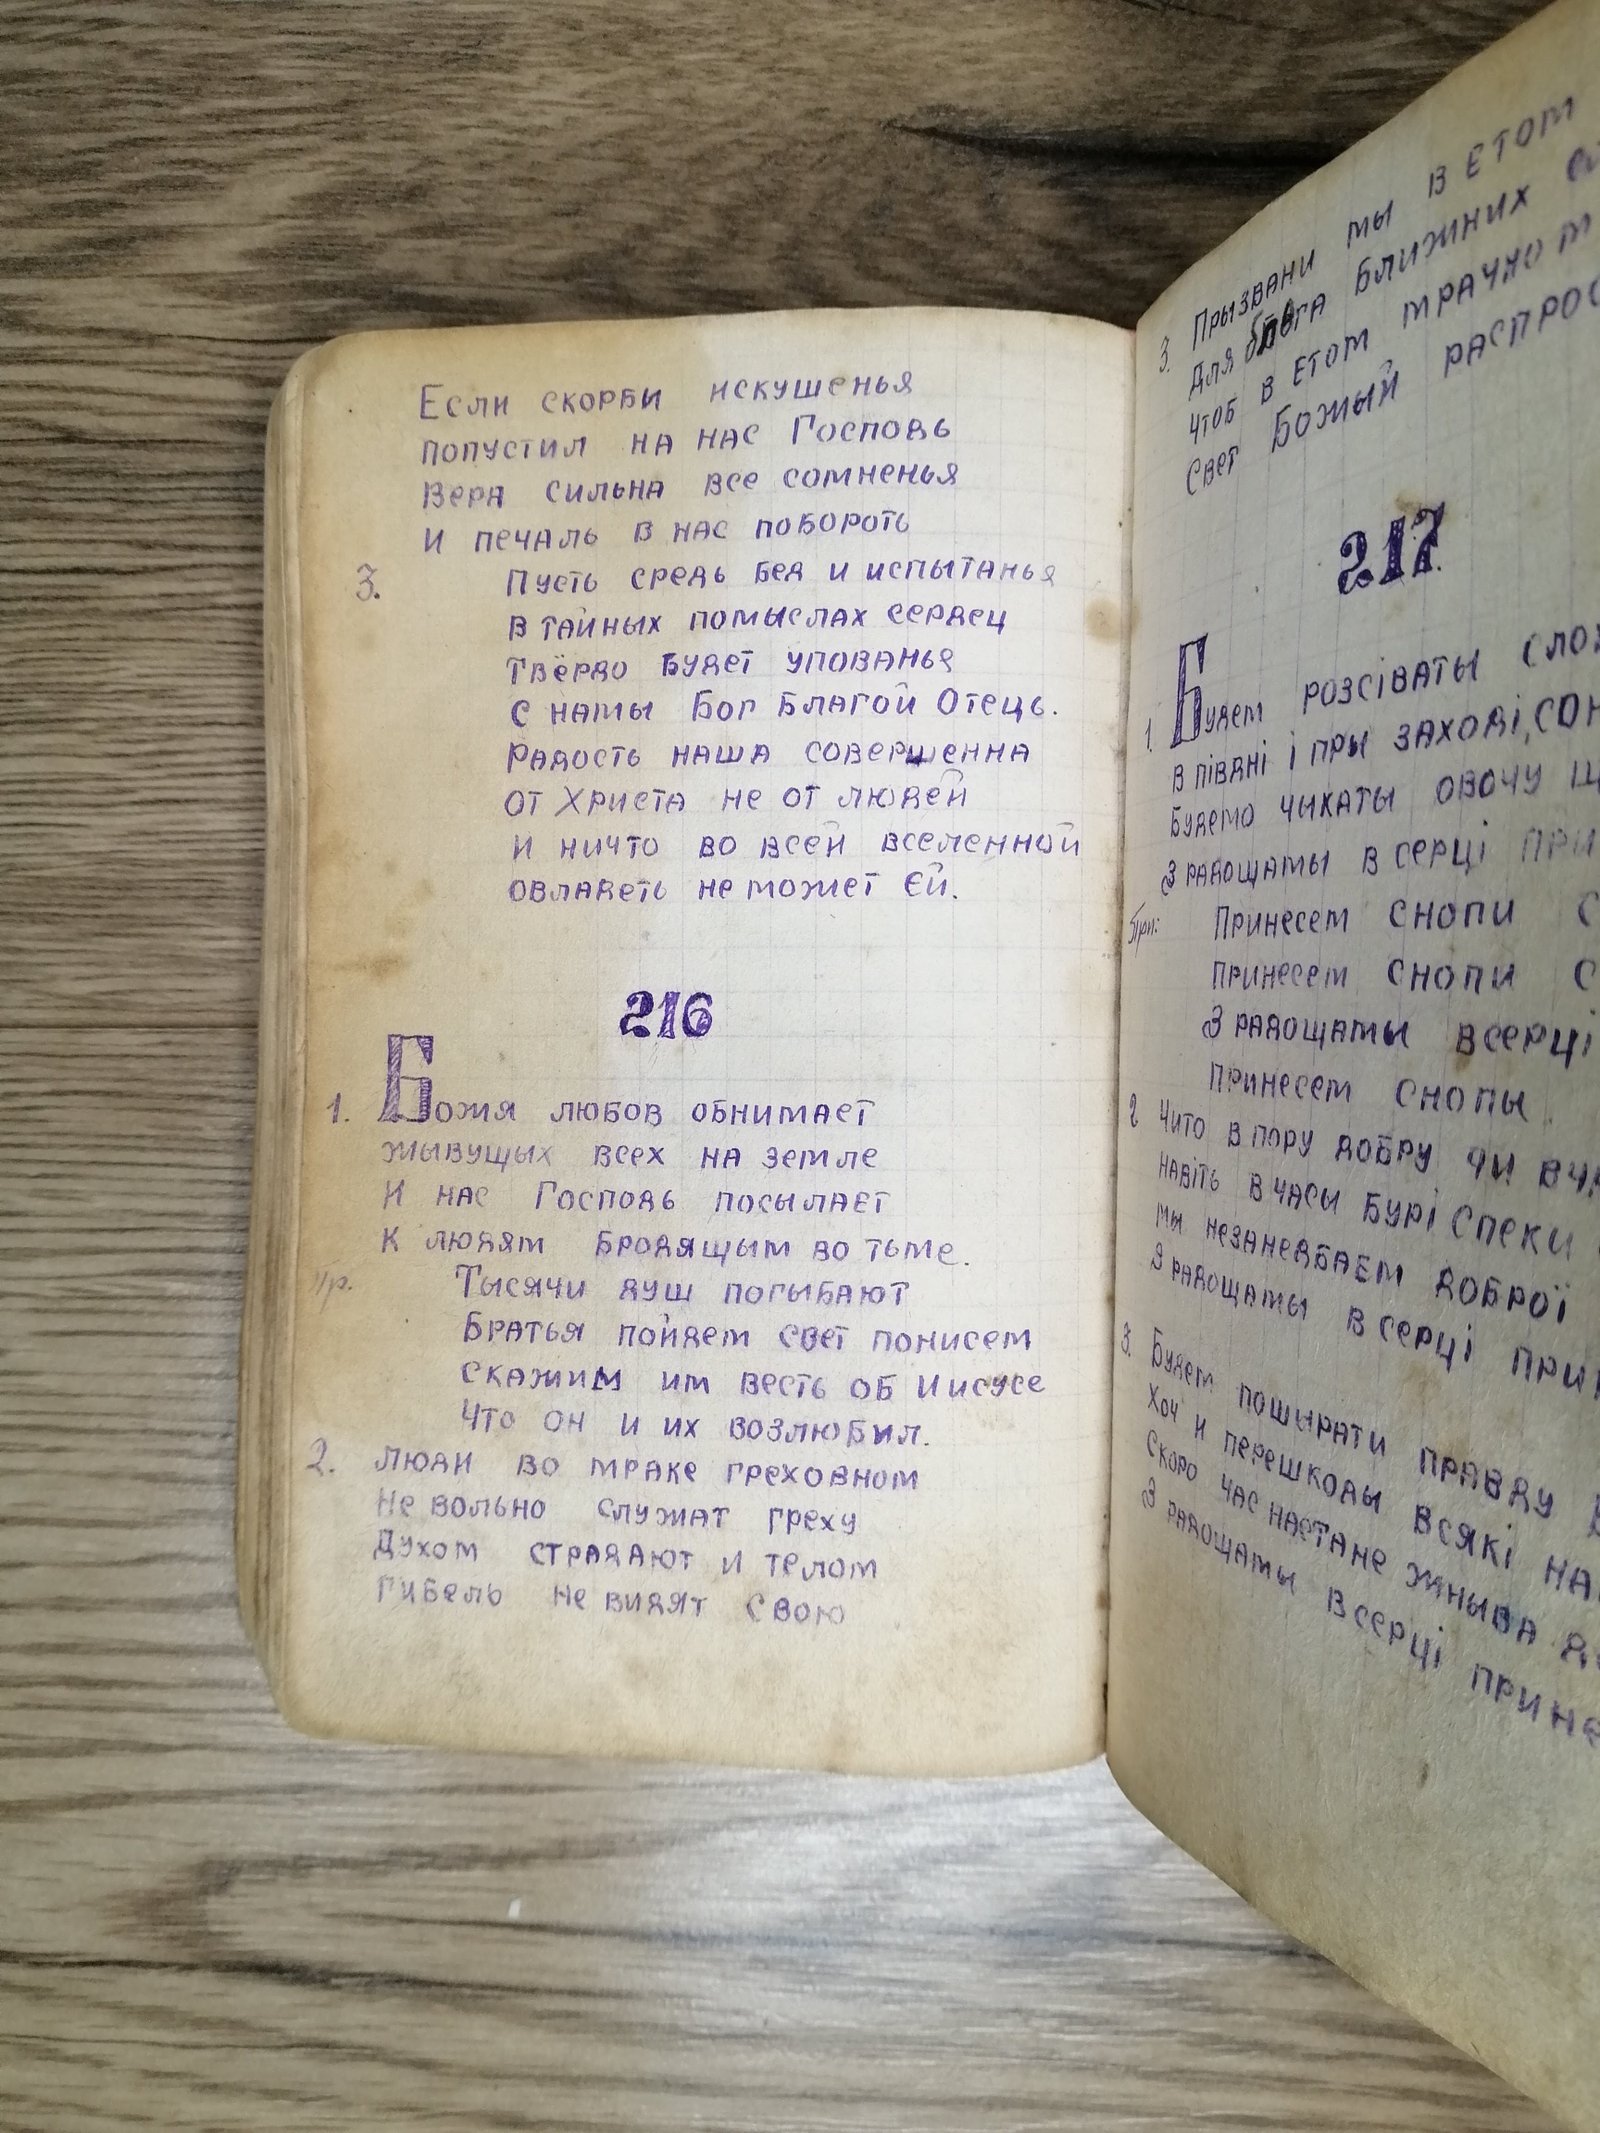 Если скорби искушенья
попустил на нас Господь
Вера сильна все сомненья
И печаль в нас побороть
3. Пусть средь бед и испытанья
в тайных помыслах сердец
твёрдо будет упованья
с намы Бог Благой Отець.
Радость наша совершенна
от Христа не от людей
и ничто во всей вселенной
овладеть не может єй.
216
1. Божя любов обнимает
жывущых всех на земле
И нас Господь посылает
к людям бродящым во тьме.
Пр. Тысячи душ погыбают
Братья пойдем свет понисем
скажим им весть об Иисусе
что он и их возлюбил.
2. люди во мраке греховном
не вольно служат греху
Духом страдают и телом
гибель не видят свою
3. Прызвани мы в етом
для блага ближних
чтоб в етом мрачном
свет Божый распрос
217.
1. Будем розсіваты
в півдні і пры заході, сон
Будемо чыкаты овочу
З радощамы в серці при
Прп: Принесем снопи с
принесем снопи с
З радощамы в серці
принесем снопы
2 Чито в пору добру чи в
навіть в часы бурі спеки
мы незанедбаем доброї
З радощамы в серці при
3. Будем пошырати правду
Хоч и перешкоды всякі на
Скоро час настане жныва
З радощамы в серці прине